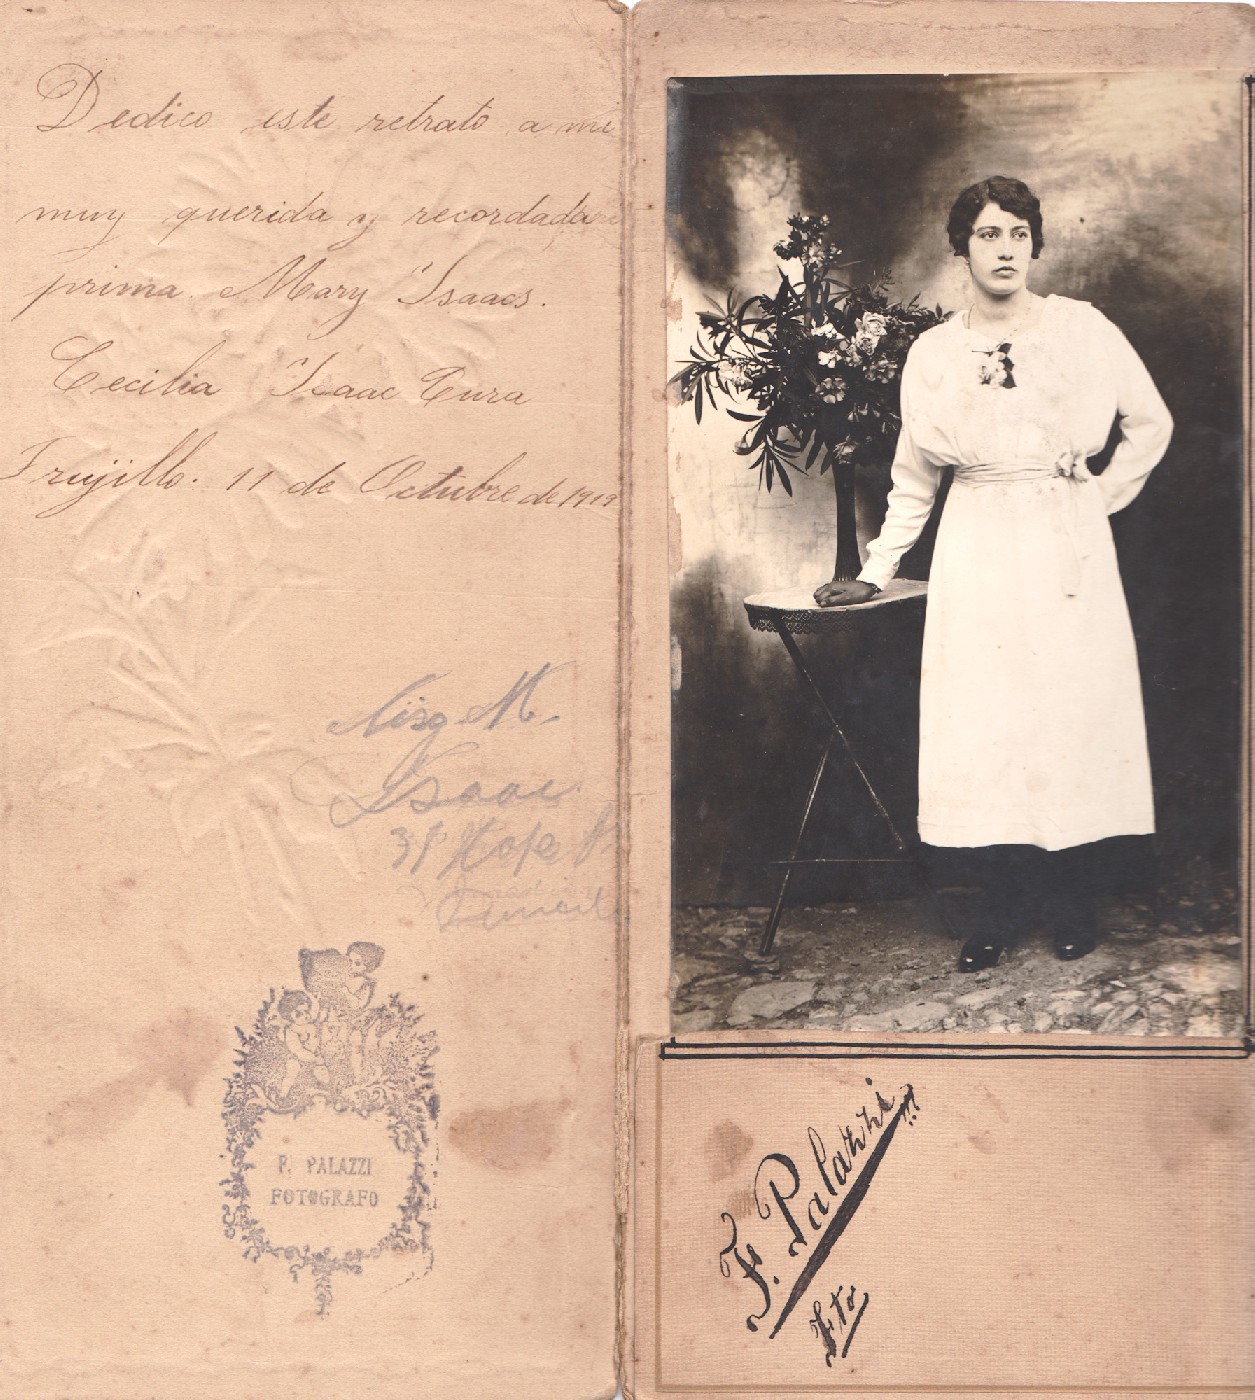 Dedico este retrato a mi
muy querida y recordada
prima Mary Isaacs.
Cecilia Isaac Cura
Trujillo. 11 de Octubre de 1919
M.
Isaac
Hope
F. PALAZZI
FOTOGRAFO
F. Palazzi
Fto